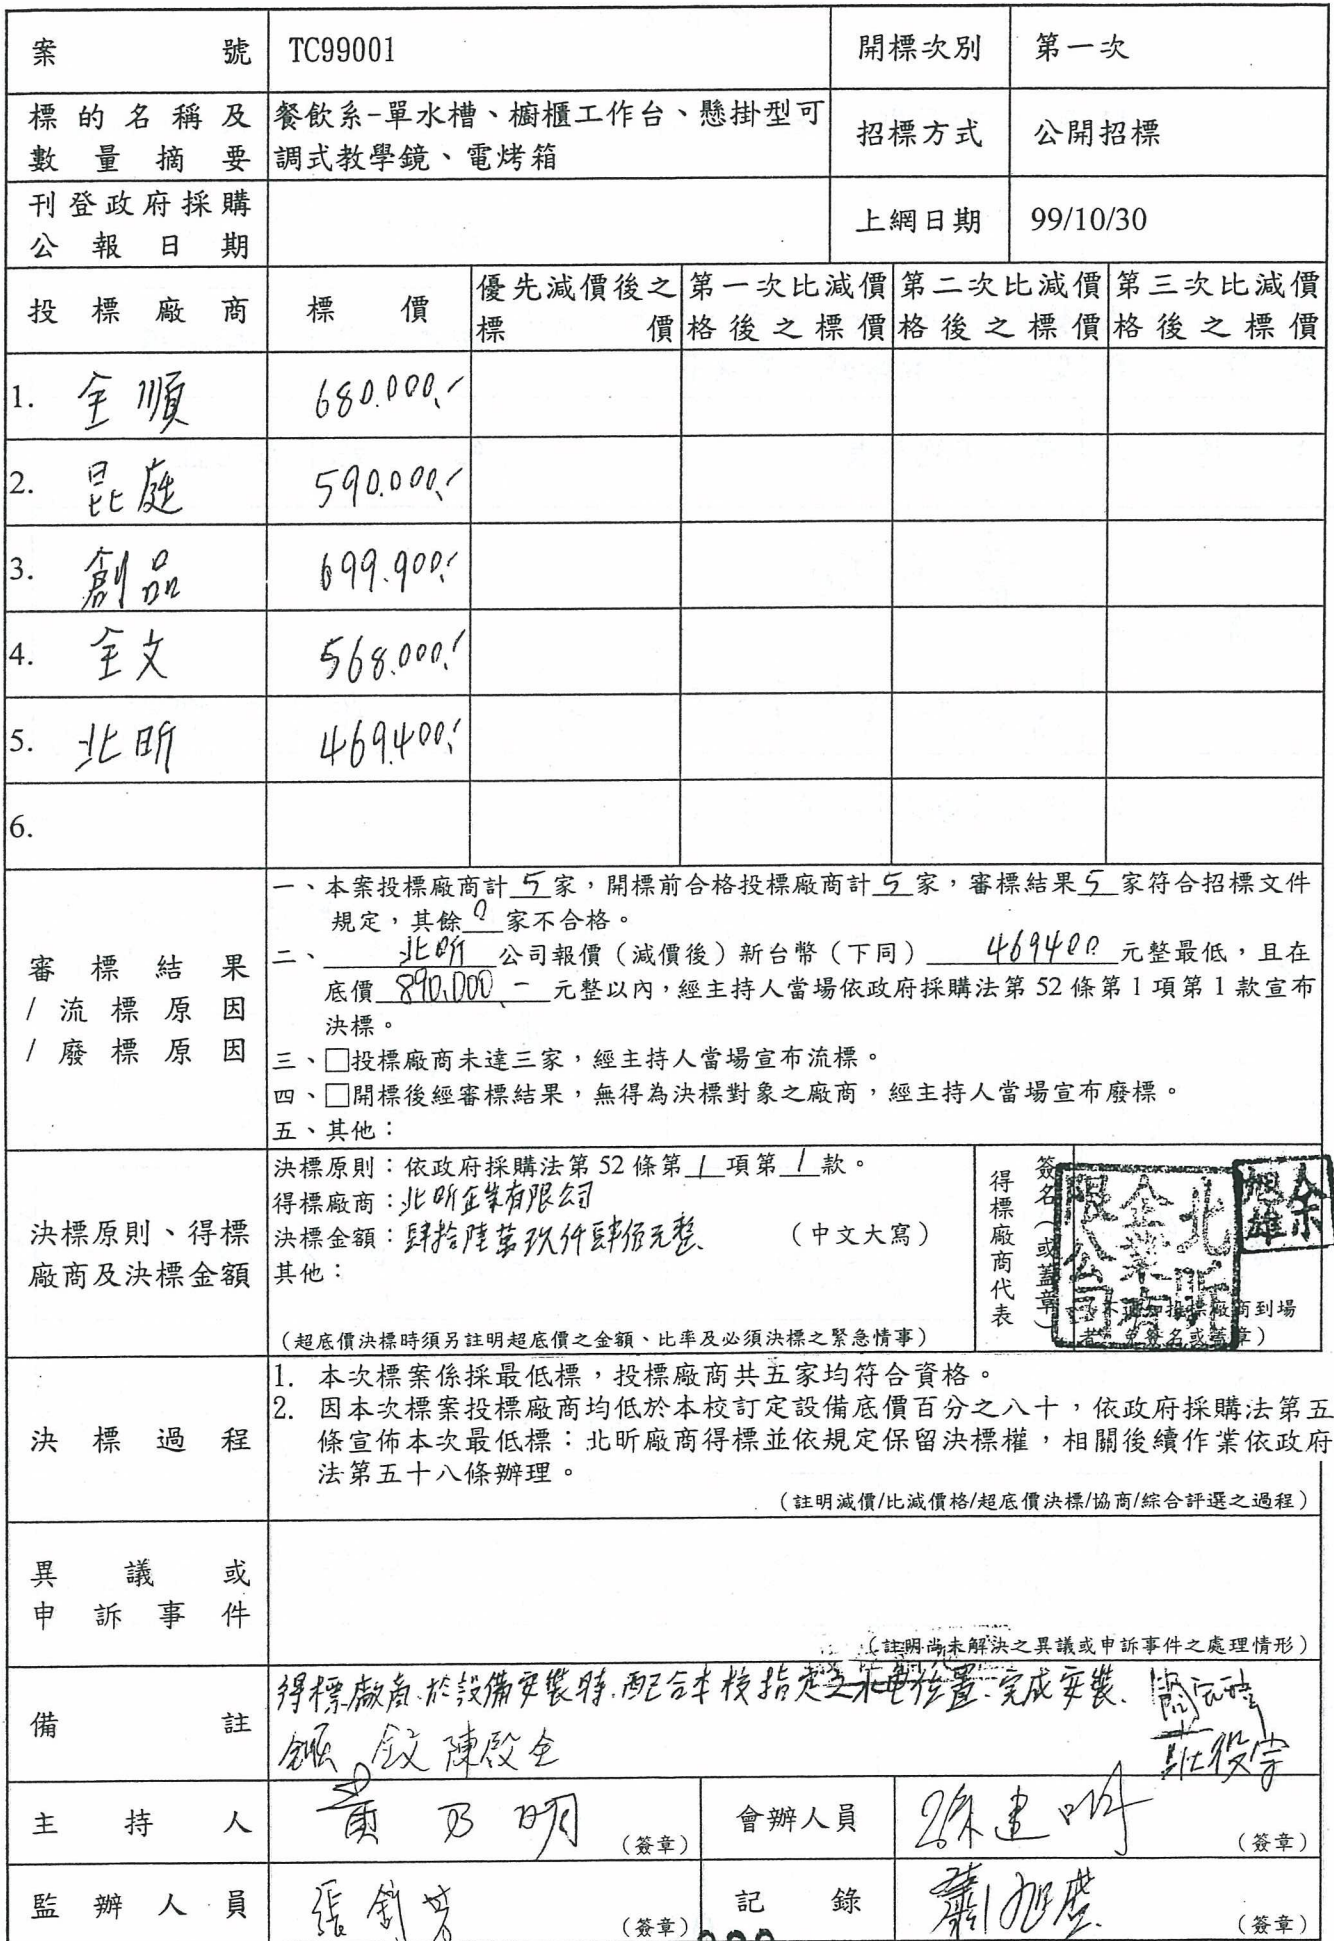 案號 TC99001 開標次別 第一次
標的名稱及數量摘要 餐飲系-單水槽、櫥櫃工作台、懸掛型可
調式教學鏡、電烤箱 招標方式 公開招標
刊登政府採購公報日期 上網日期 99/10/30
投標廠商 標價 優先減價後之標價 第一次比減價格後之標價 第二次比減價格後之標價 第三次比減價格後之標價
1. 全順 680.000,-
2. 昆庭 590.000,-
3. 創品 699.900,-
4. 全文 568.000,-
5. 北昕 469.400,-
6.
審標結果
/流標原因
/廢標原因
一、本案投標廠商計5家,開標前合格投標廠商計5家,審標結果5家符合招標文件
規定,其餘0家不合格。
二、北昕公司報價(減價後)新台幣(下同)469400元整最低,且在
底價890,000-元整以內,經主持人當場依政府採購法第52條第1項第1款宣布
決標。
三、□投標廠商未達三家,經主持人當場宣布流標。
四、□開標後經審標結果,無得為決標對象之廠商,經主持人當場宣布廢標。
五、其他:
決標原則、得標
廠商及決標金額
決標原則:依政府採購法第52條第1項第1款。
得標廠商:北昕企業有限公司
決標金額:肆拾陸萬玖仟肆佰元整 (中文大寫)
其他:
(超底價決標時須另註明超底價之金額、比率及必須決標之緊急情事)
得標廠商代表
簽名(或蓋章)
北昕企業有限公司
余旭雄
投標廠商到場
者,免簽名或蓋章)
決標過程
1. 本次標案係採最低標,投標廠商共五家均符合資格。
2. 因本次標案投標廠商均低於本校訂定設備底價百分之八十,依政府採購法第五
條宣佈本次最低標:北昕廠商得標並依規定保留決標權,相關後續作業依政府
法第五十八條辦理。
(註明減價/比減價格/超底價決標/協商/綜合評選之過程)
異議或
申訴事件
(註明尚未解決之異議或申訴事件之處理情形)
備註
得標廠商於設備安裝時,配合本校指定之水電位置、完成安裝.
陳啟全
主持人 黃乃明 (簽章) 會辦人員 (簽章)
監辦人員 (簽章) 記錄 (簽章)